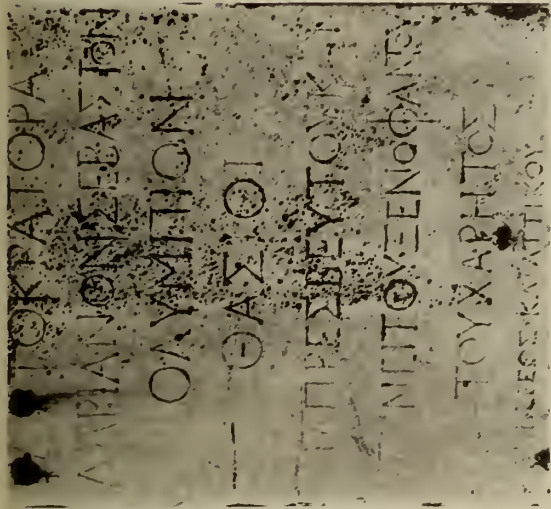 ΤΟΚΡΑΤΟΡΑ
ΑΔΡΙΑΝΟΝΣΕΒΑΣΤΟΝ
ΟΛΥΜΠΙΟΝ
ΘΑΣΙΟΙ
ΠΡΕΣΒΕΥΤΟΥΚ
ΝΕΙΤΟΥΞΕΝΟΦΑΝΤΟ
ΤΟΥΧΑΡΗΤΟΣ